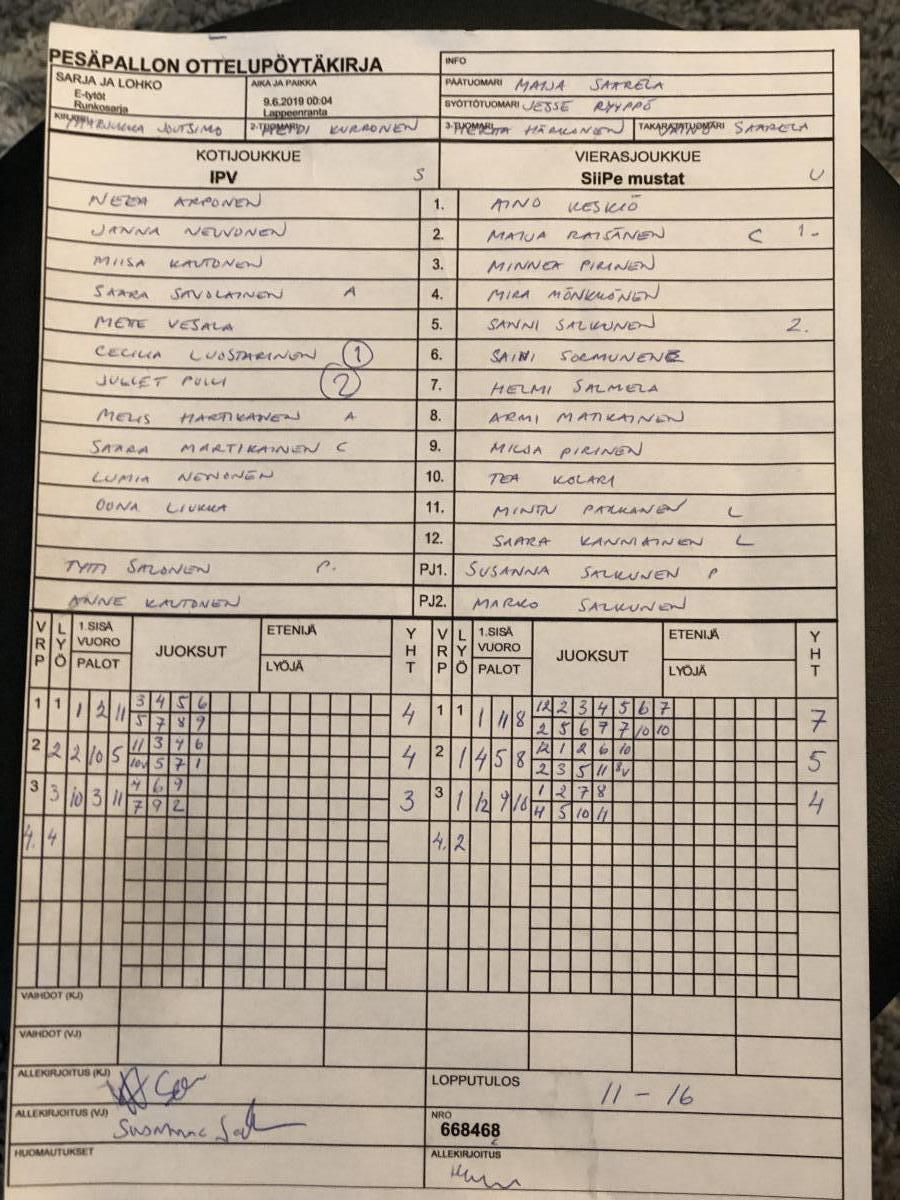 PESÄPALLON OTTELUPÖYTÄKIRJA
INFO
SARJA JA LOHKO
E-tytöt
Runkosarja
AIKA JA PAIKKA
9.6.2019 00:04
Lappeenranta
PÄÄTUOMARI MAIJA SAARELA
SYÖTTÖTUOMARI JESSE RYYPPÖ
KIRJURI JOUTSIMO
2-TUOMARI HEIDI KURRONEN
3-TUOMARI HERTTA HÄRKÄNEN
TAKARAJATUOMARI VÄINÖ SAARELA
KOTIJOUKKUE
IPV S
VIERASJOUKKUE
SiiPe mustat U
NEEA ARPONEN 1. AINO KESKIÖ
JANNA NEUVONEN 2. MAIJA RÄISÄNEN C 1-
MIISA KAUTONEN 3. MINNEA PIRINEN
SAARA SAVOLAINEN A 4. MIRA MÖNKKÖNEN
METTE VESALA 5. SANNI SALKUNEN 2.
CECILIA LUOSTARINEN 1 6. SAINI SORMUNEN
JULIET PULLI 2 7. HELMI SALMELA
MELIS HARTIKAINEN A 8. ARMI MATIKAINEN
SAARA MARTIKAINEN C 9. MILJA PIRINEN
LUMIA NENONEN 10. TEA KOLARI
OONA LIUKKA 11. MINTU PAKKANEN L
12. SAARA KANNIAINEN L
TYTTI SALONEN P. PJ1. SUSANNA SALKUNEN P
ANNE KAUTONEN PJ2. MARKO SALKUNEN
VRP LYÖ 1.SISÄ VUORO PALOT JUOKSUT ETENIJÄ LYÖJÄ YHT VRP LYÖ 1.SISÄ VUORO PALOT JUOKSUT ETENIJÄ LYÖJÄ YHT
1 1 1 2 11 3 4 5 6 4 1 1 1 11 8 12 2 3 4 5 6 7 7
5 7 8 9 2 5 6 7 7 10 10
2 2 2 10 5 11 3 4 6 4 2 1 4 5 8 12 1 2 6 10 5
10v 5 7 1 2 3 5 11 8v
3 3 10 3 11 4 6 9 3 3 1 12 9 10 1 2 7 8 4
7 9 2 4 5 10 11
4. 4 4. 2
VAIHDOT (KJ)
VAIHDOT (VJ)
ALLEKIRJOITUS (KJ)
LOPPUTULOS 11 - 16
ALLEKIRJOITUS (VJ) Susanna
NRO
668468
HUOMAUTUKSET
ALLEKIRJOITUS